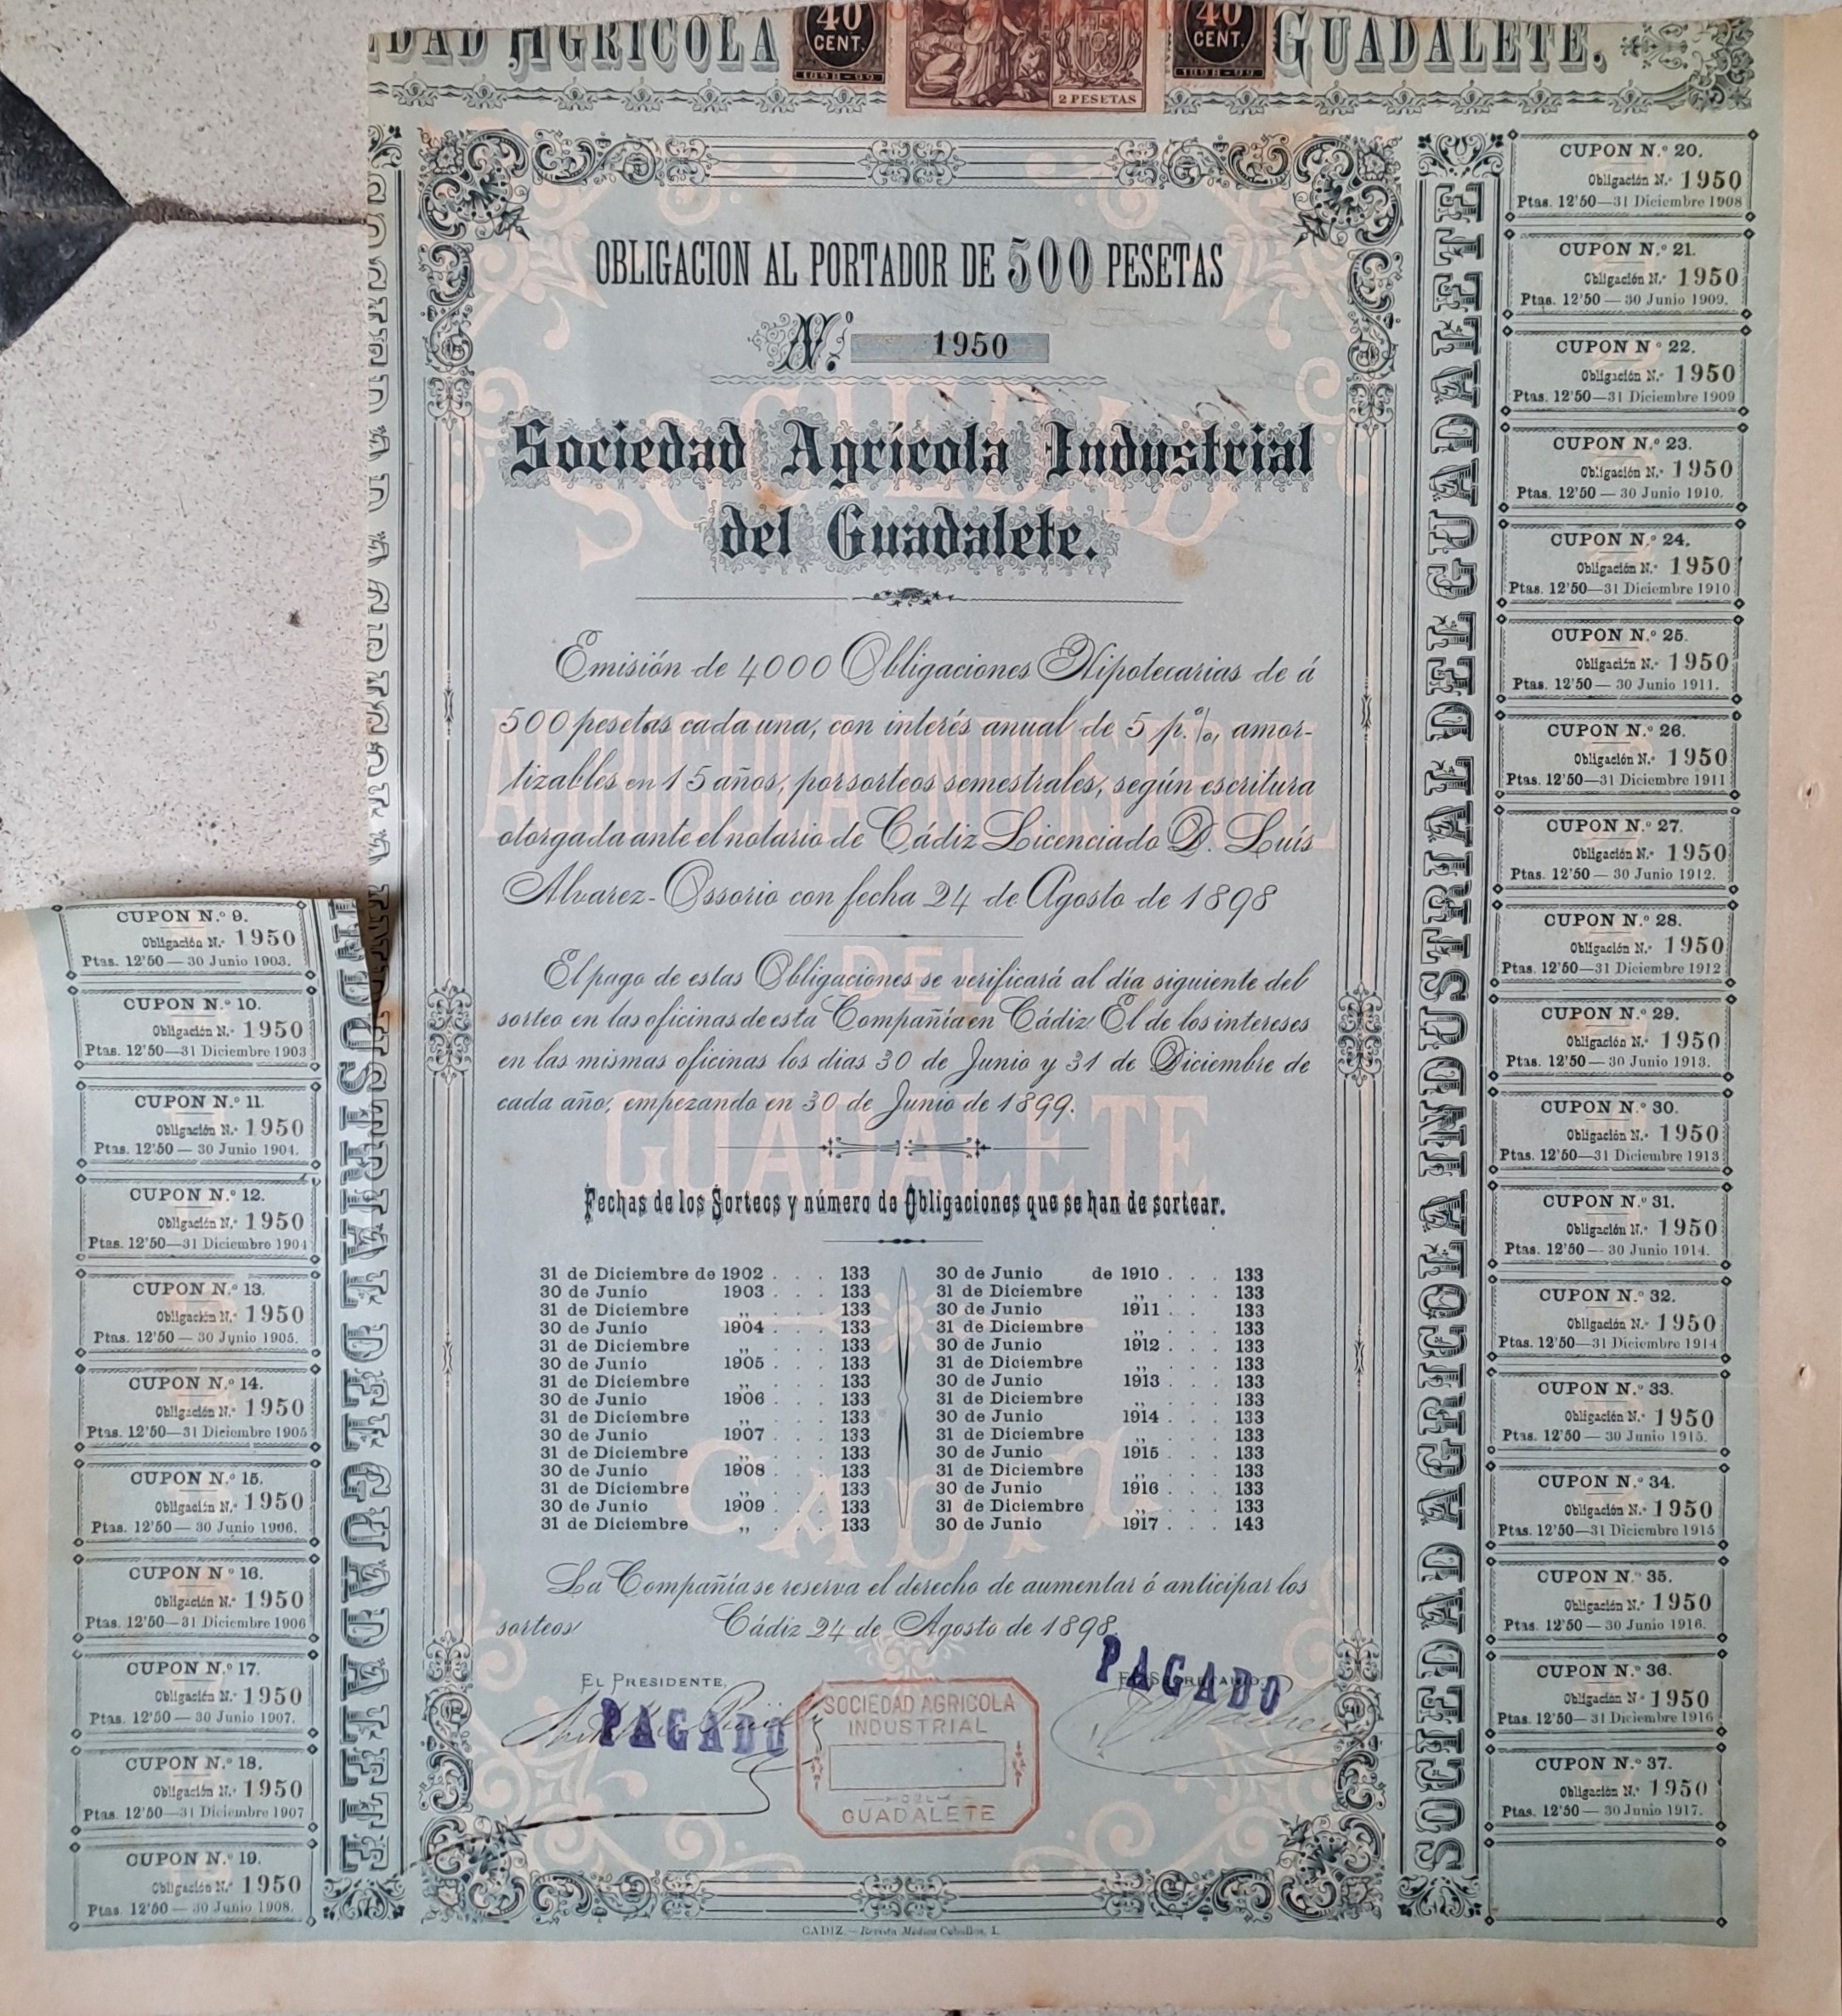 AGRICOLA
GUADALETE.
40
CENT.
1898-99
2 PESETAS
40
CENT.
1898-99
OBLIGACION AL PORTADOR DE 500 PESETAS
N.º 1950
Sociedad Agrícola Industrial
del Guadalete.
Emisión de 4000 Obligaciones Hipotecarias de á
500 pesetas cada una, con interés anual de 5 p.%, amor-
tizables en 15 años, por sorteos semestrales, según escritura
otorgada ante el notario de Cádiz Licenciado D. Luís
Alvarez-Ossorio con fecha 24 de Agosto de 1898
El pago de estas Obligaciones se verificará al día siguiente del
sorteo en las oficinas de esta Compañía en Cádiz. El de los intereses
en las mismas oficinas los dias 30 de Junio y 31 de Diciembre de
cada año, empezando en 30 de Junio de 1899.
Fechas de los Sorteos y número de Obligaciones que se han de sortear.
31 de Diciembre de 1902 . . . 133
30 de Junio 1903 . . . 133
31 de Diciembre ,, . . . 133
30 de Junio 1904 . . . 133
31 de Diciembre ,, . . . 133
30 de Junio 1905 . . . 133
31 de Diciembre ,, . . . 133
30 de Junio 1906 . . . 133
31 de Diciembre ,, . . . 133
30 de Junio 1907 . . . 133
31 de Diciembre ,, . . . 133
30 de Junio 1908 . . . 133
31 de Diciembre ,, . . . 133
30 de Junio 1909 . . . 133
31 de Diciembre ,, . . . 133
30 de Junio de 1910 . . . 133
31 de Diciembre ,, . . . 133
30 de Junio 1911 . . . 133
31 de Diciembre ,, . . . 133
30 de Junio 1912 . . . 133
31 de Diciembre ,, . . . 133
30 de Junio 1913 . . . 133
31 de Diciembre ,, . . . 133
30 de Junio 1914 . . . 133
31 de Diciembre ,, . . . 133
30 de Junio 1915 . . . 133
31 de Diciembre ,, . . . 133
30 de Junio 1916 . . . 133
31 de Diciembre ,, . . . 133
30 de Junio 1917 . . . 143
La Compañía se reserva el derecho de aumentar ó anticipar los
sorteos
Cádiz 24 de Agosto de 1898.
EL PRESIDENTE,
PAGADO
PAGADO
SOCIEDAD AGRICOLA
INDUSTRIAL
DEL
GUADALETE
CADIZ.—Revista Médica Ceballos, 1.
SOCIEDAD
AGRICOLA INDUSTRIAL
DEL
GUADALETE
CADIZ
SOCIEDAD AGRICOLA INDUSTRIAL DEL GUADALETE
SOCIEDAD AGRICOLA INDUSTRIAL DEL GUADALETE
CUPON N.º 9.
Obligación N.º 1950
Ptas. 12'50 — 30 Junio 1903.
CUPON N.º 10.
Obligación N.º 1950
Ptas. 12'50—31 Diciembre 1903
CUPON N.º 11.
Obligación N.º 1950
Ptas. 12'50 — 30 Junio 1904.
CUPON N.º 12.
Obligación N.º 1950
Ptas. 12'50—31 Diciembre 1904
CUPON N.º 13.
Obligación N.º 1950
Ptas. 12'50 — 30 Junio 1905.
CUPON N.º 14.
Obligación N.º 1950
Ptas. 12'50—31 Diciembre 1905
CUPON N.º 15.
Obligación N.º 1950
Ptas. 12'50 — 30 Junio 1906.
CUPON N.º 16.
Obligación N.º 1950
Ptas. 12'50—31 Diciembre 1906
CUPON N.º 17.
Obligación N.º 1950
Ptas. 12'50 — 30 Junio 1907.
CUPON N.º 18.
Obligación N.º 1950
Ptas. 12'50—31 Diciembre 1907
CUPON N.º 19.
Obligación N.º 1950
Ptas. 12'50 — 30 Junio 1908.
CUPON N.º 20.
Obligación N.º 1950
Ptas. 12'50—31 Diciembre 1908
CUPON N.º 21.
Obligación N.º 1950
Ptas. 12'50 — 30 Junio 1909.
CUPON N.º 22.
Obligación N.º 1950
Ptas. 12'50—31 Diciembre 1909
CUPON N.º 23.
Obligación N.º 1950
Ptas. 12'50 — 30 Junio 1910.
CUPON N.º 24.
Obligación N.º 1950
Ptas. 12'50—31 Diciembre 1910
CUPON N.º 25.
Obligación N.º 1950
Ptas. 12'50 — 30 Junio 1911.
CUPON N.º 26.
Obligación N.º 1950
Ptas. 12'50—31 Diciembre 1911
CUPON N.º 27.
Obligación N.º 1950
Ptas. 12'50 — 30 Junio 1912.
CUPON N.º 28.
Obligación N.º 1950
Ptas. 12'50—31 Diciembre 1912
CUPON N.º 29.
Obligación N.º 1950
Ptas. 12'50 — 30 Junio 1913.
CUPON N.º 30.
Obligación N.º 1950
Ptas. 12'50—31 Diciembre 1913
CUPON N.º 31.
Obligación N.º 1950
Ptas. 12'50 — 30 Junio 1914.
CUPON N.º 32.
Obligación N.º 1950
Ptas. 12'50—31 Diciembre 1914
CUPON N.º 33.
Obligación N.º 1950
Ptas. 12'50 — 30 Junio 1915.
CUPON N.º 34.
Obligación N.º 1950
Ptas. 12'50—31 Diciembre 1915
CUPON N.º 35.
Obligación N.º 1950
Ptas. 12'50 — 30 Junio 1916.
CUPON N.º 36.
Obligación N.º 1950
Ptas. 12'50—31 Diciembre 1916
CUPON N.º 37.
Obligación N.º 1950
Ptas. 12'50 — 30 Junio 1917.